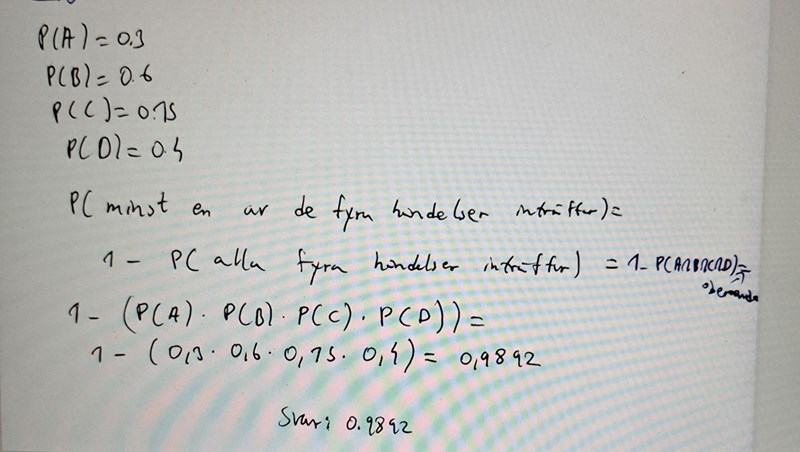 P(A)=0.3
P(B)=0.6
P(C)=0.15
P(D)=0.4
P( minst en av de fyra händelser inträffar)=
1 - P( alla fyra händelser inträffar) = 1-P(A∩B∩C∩D)=
oberoende
1 - (P(A)· P(B)· P(C)· P(D))=
1 - (0,3· 0,6· 0,15· 0,4)= 0,9892
Svar: 0.9892